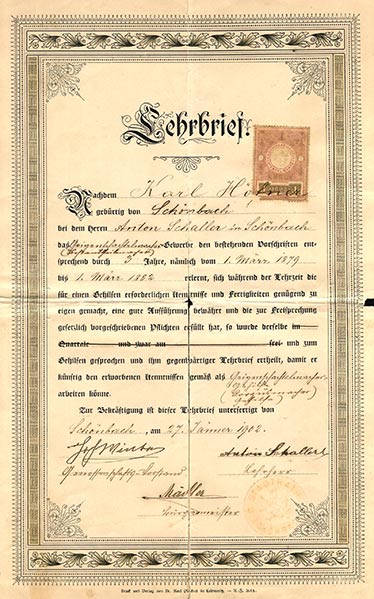 Lehrbrief.
Nachdem Karl Hö
gebürtig von Schönbach
bei dem Herrn Anton Schaller in Schönbach
das Geigenschachtelmacher Gewerbe den bestehenden Vorschriften ent-
sprechend durch 3 Jahre, nämlich vom 1. März 1879
bis 1. März 1882 erlernt, sich während der Lehrzeit die
für einen Gehilfen erforderlichen Kenntnisse und Fertigkeiten genügend zu
eigen gemacht, eine gute Aufführung bewährt und die zur Freisprechung
gesetzlich vorgeschriebenen Pflichten erfüllt hat, so wurde derselbe im
Quartale und zwar am frei- und zum
Gehilfen gesprochen und ihm gegenwärtiger Lehrbrief ertheilt, damit er
künftig den erworbenen Kenntnissen gemäß als Geigenschachtelmacher
arbeiten könne.
Zur Bekräftigung ist dieser Lehrbrief unterfertigt von
Schönbach, am 27. Jänner 1902.
Anton Schaller
Genossenschafts-Vorstand Lehrherr
Mädler
Bürgermeister
Druck und Verlag von Dr. Karl